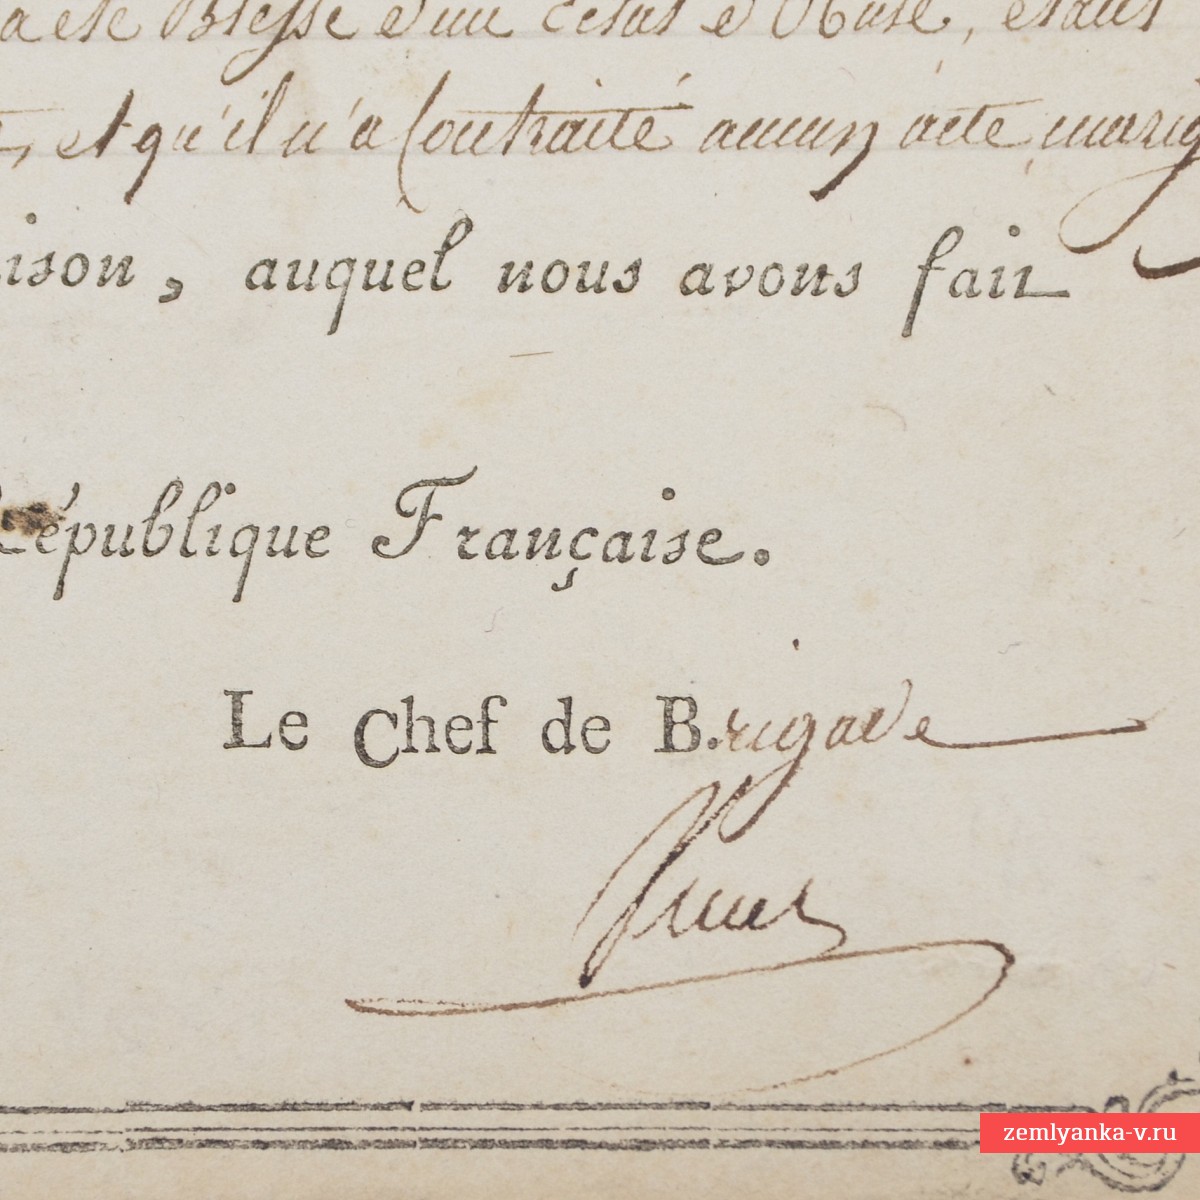 a été Blessé d'un Eclat d'Obus, étant
et qu'il n'a Contraité aucun acte marig
ison, auquel nous avons fait
République Française.
Le Chef de B.rigade
zemlyanka-v.ru